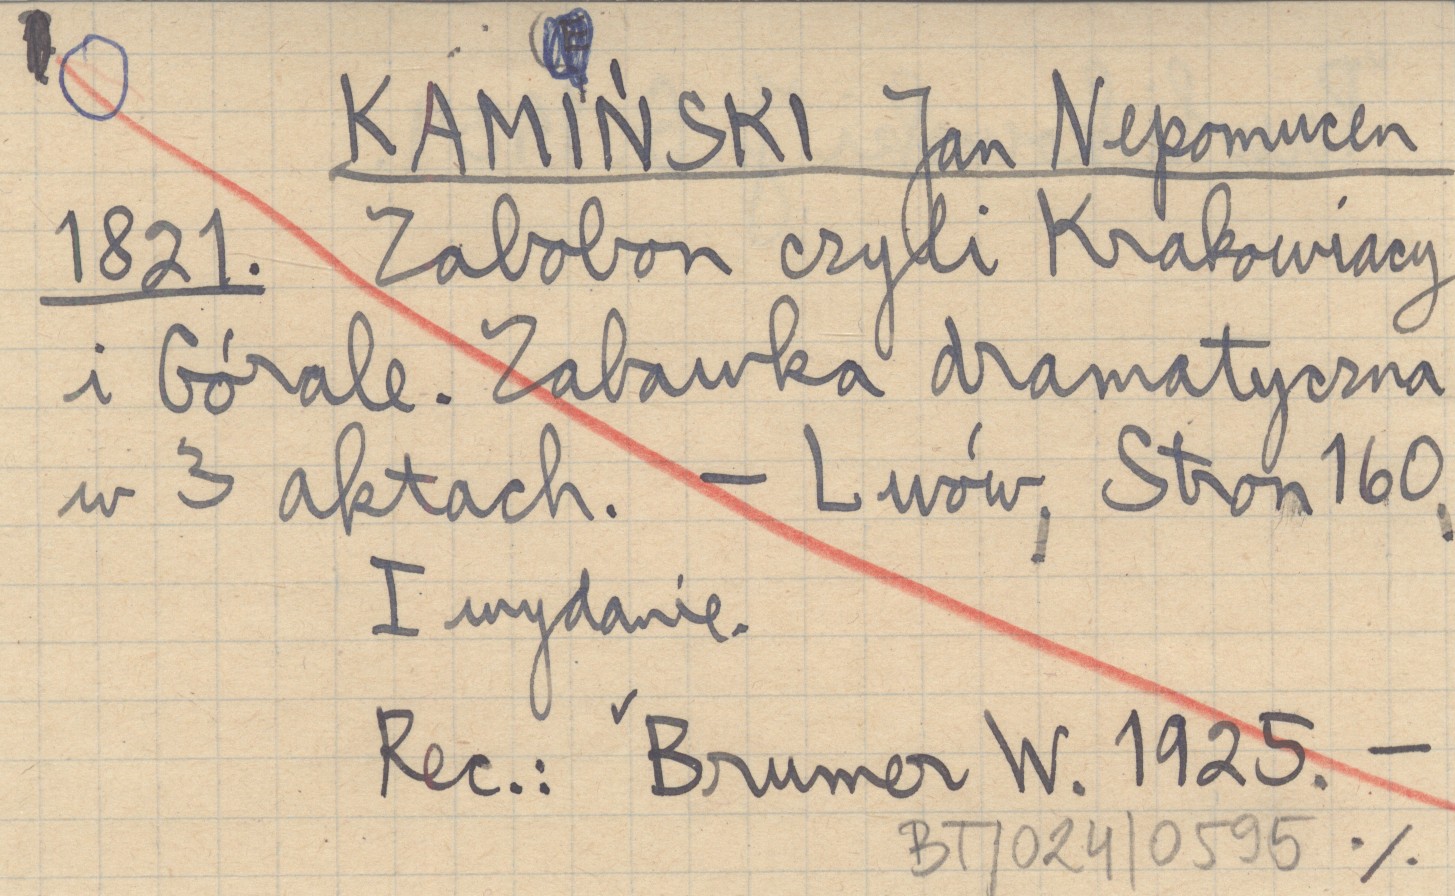 KAMIŃSKI Jan Nepomucen
1821. Zabobon czyli Krakowiacy
i Górale. Zabawka dramatyczna
w 3 aktach. – Lwów, Stron 160.
I wydanie.
Rec.: Brumer W. 1925. –
BT/024/0595 ./.